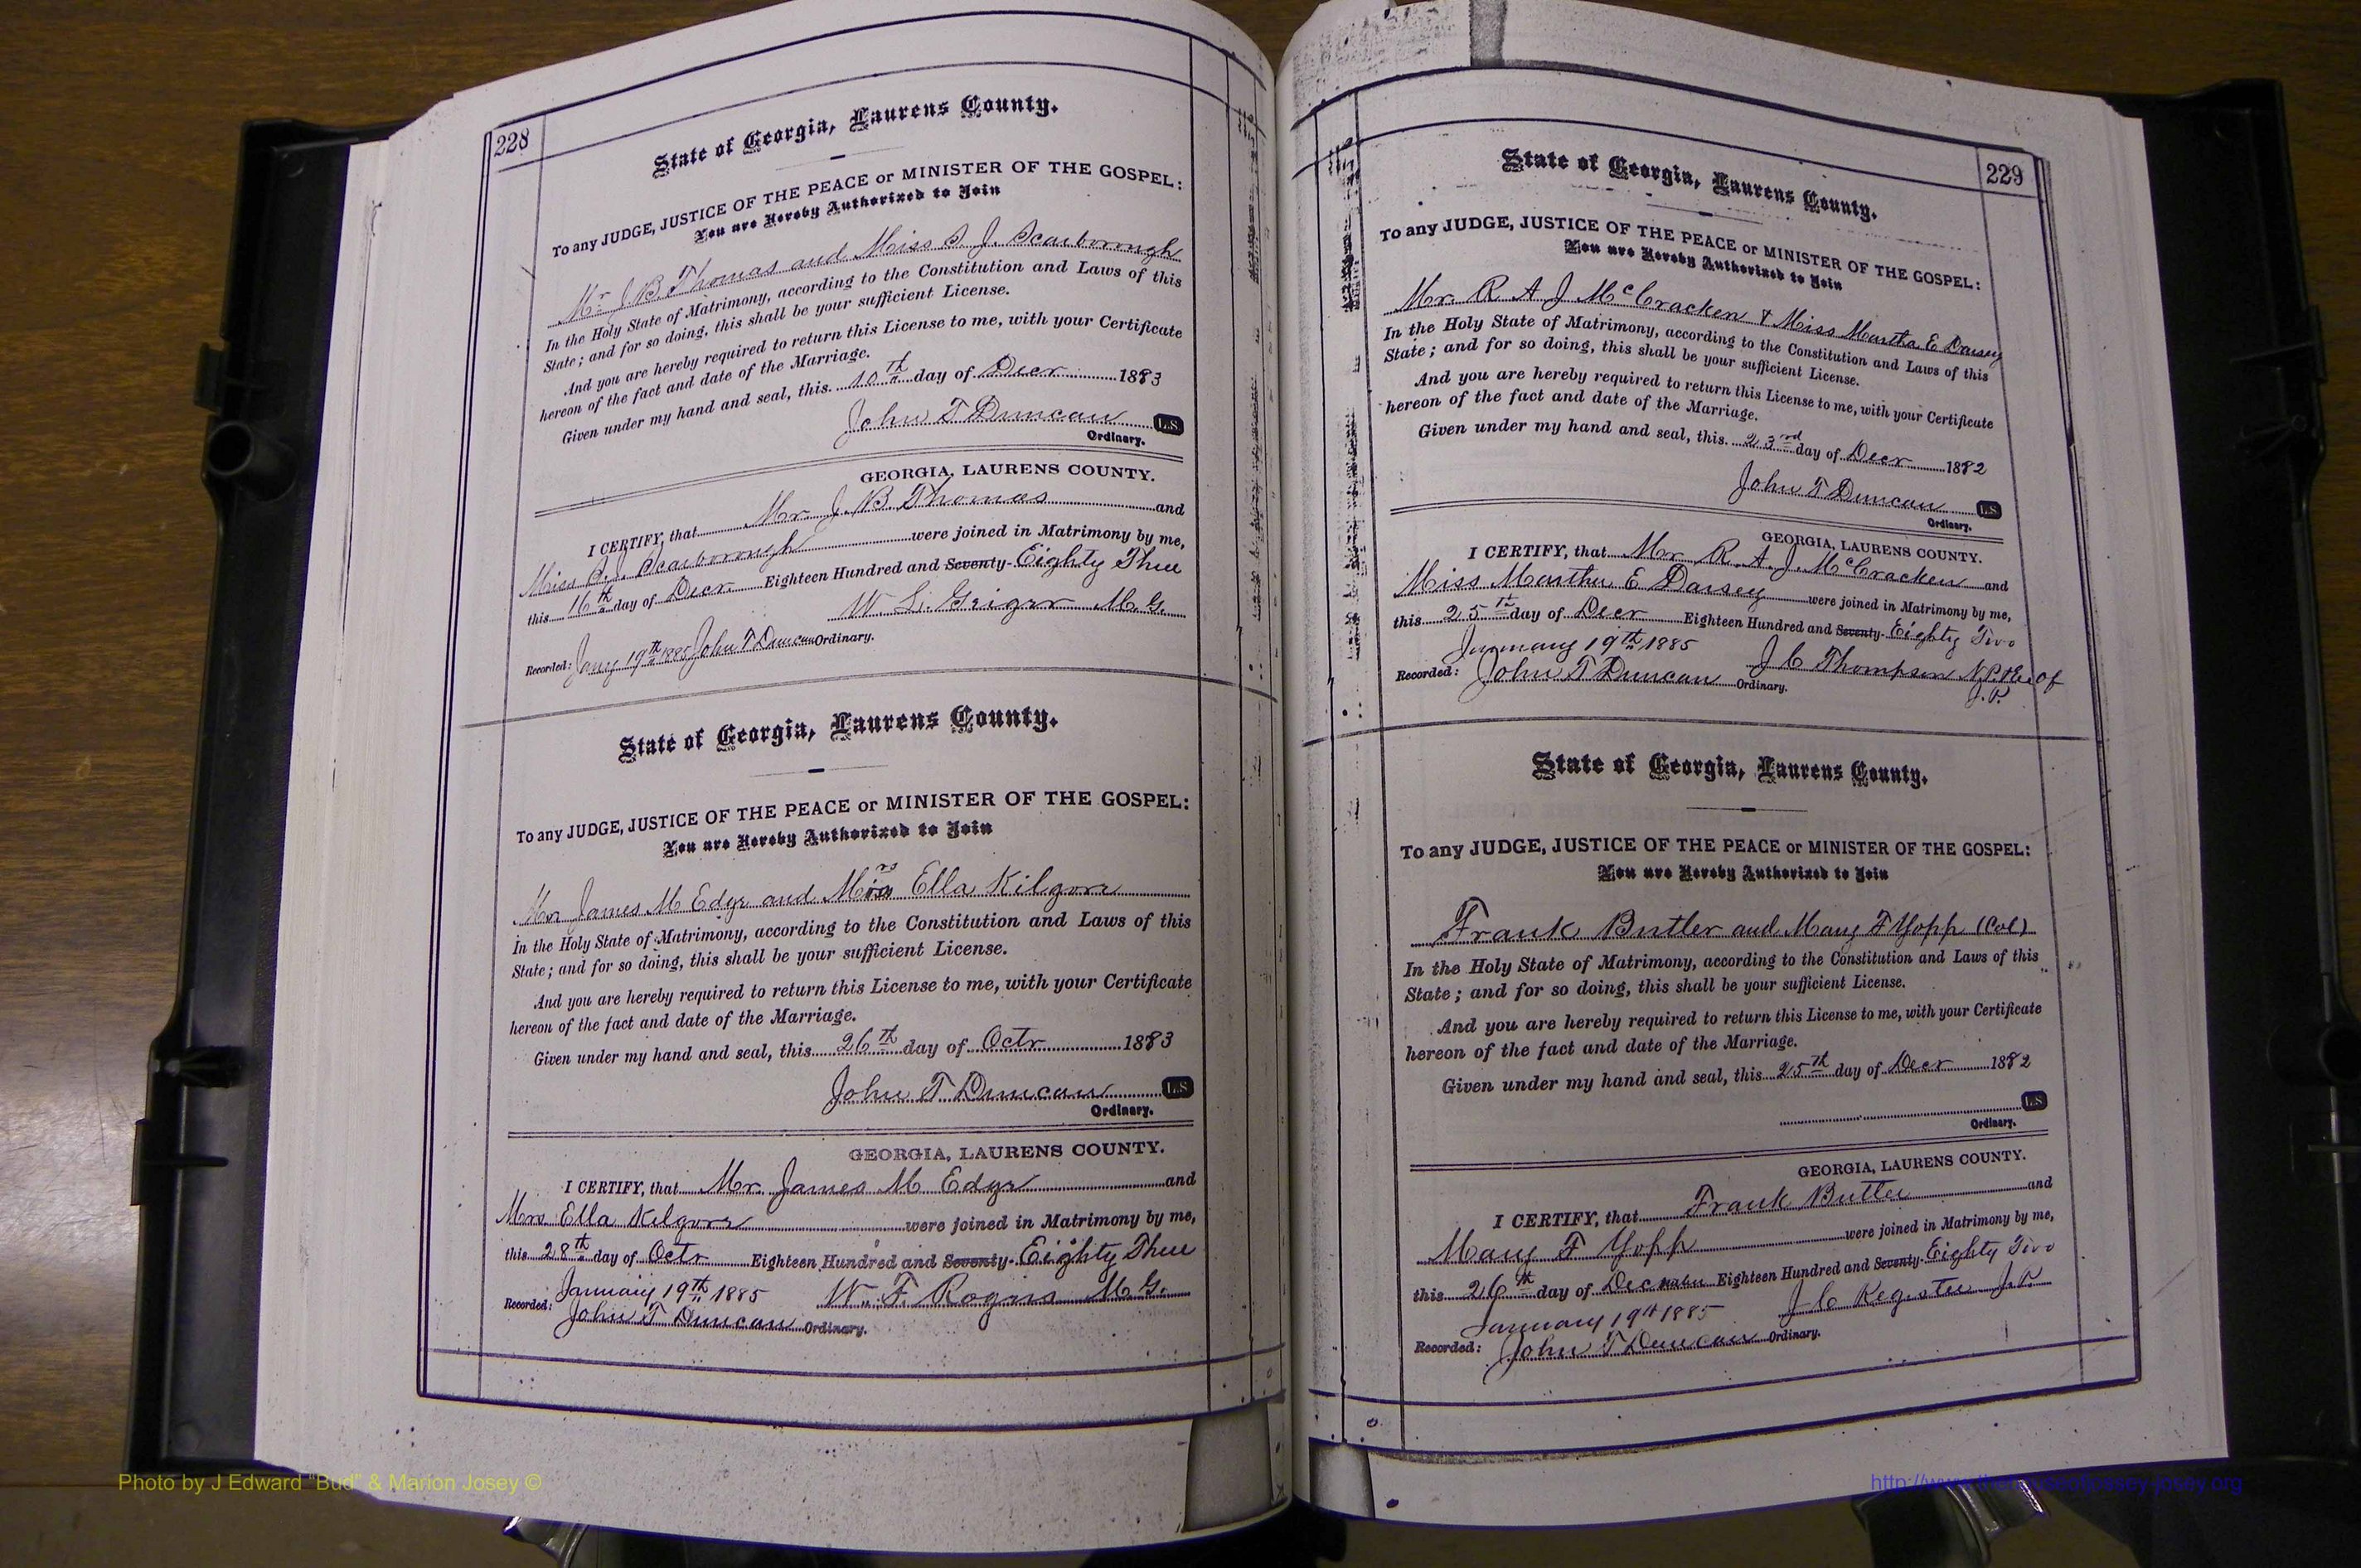 228
State of Georgia, Laurens County.
To any JUDGE, JUSTICE OF THE PEACE or MINISTER OF THE GOSPEL:
You are Hereby Authorized to Join
Mr J. B. Thomas and Miss S. J. Scarborough
In the Holy State of Matrimony, according to the Constitution and Laws of this
State; and for so doing, this shall be your sufficient License.
And you are hereby required to return this License to me, with your Certificate
hereon of the fact and date of the Marriage.
Given under my hand and seal, this 10th day of Decr 1883
John T Duncan L.S.
Ordinary.
GEORGIA, LAURENS COUNTY.
I CERTIFY, that Mr. J. B. Thomas and
Miss S. J. Scarborough were joined in Matrimony by me,
this 16th day of Decr Eighteen Hundred and Seventy- Eighty Three
W. S. Geiger M.G.
Recorded: Jany 19th 1885 John T Duncan Ordinary.
State of Georgia, Laurens County.
To any JUDGE, JUSTICE OF THE PEACE or MINISTER OF THE GOSPEL:
You are Hereby Authorized to Join
Mr James M Edge and Mrs Ella Kilgore
In the Holy State of Matrimony, according to the Constitution and Laws of this
State; and for so doing, this shall be your sufficient License.
And you are hereby required to return this License to me, with your Certificate
hereon of the fact and date of the Marriage.
Given under my hand and seal, this 26th day of Octr 1883
John T Duncan L.S
Ordinary.
GEORGIA, LAURENS COUNTY.
I CERTIFY, that Mr. James M Edge and
Mrs Ella Kilgore were joined in Matrimony by me,
this 28th day of Octr Eighteen Hundred and Seventy- Eighty Three
January 19th 1885 W. F. Rogers M.G.
Recorded: John T Duncan Ordinary.
229
State of Georgia, Laurens County.
To any JUDGE, JUSTICE OF THE PEACE or MINISTER OF THE GOSPEL:
You are Hereby Authorized to Join
Mr. R A J McCracken & Miss Martha E Darsey
In the Holy State of Matrimony, according to the Constitution and Laws of this
State; and for so doing, this shall be your sufficient License.
And you are hereby required to return this License to me, with your Certificate
hereon of the fact and date of the Marriage.
Given under my hand and seal, this 23rd day of Decr 1882
John T Duncan L.S
Ordinary.
GEORGIA, LAURENS COUNTY.
I CERTIFY, that Mr R. A. J. McCracken and
Miss Martha E Darsey were joined in Matrimony by me,
this 25th day of Decr Eighteen Hundred and Seventy- Eighty Two
January 19th 1885 J C Thompson N.P. of
Recorded: John T Duncan Ordinary. J.P.
State of Georgia, Laurens County.
To any JUDGE, JUSTICE OF THE PEACE or MINISTER OF THE GOSPEL:
You are Hereby Authorized to Join
Frank Butler and Mary F Yopp (Col)
In the Holy State of Matrimony, according to the Constitution and Laws of this
State; and for so doing, this shall be your sufficient License.
And you are hereby required to return this License to me, with your Certificate
hereon of the fact and date of the Marriage.
Given under my hand and seal, this 25th day of Decr 1882
L.S
Ordinary.
GEORGIA, LAURENS COUNTY.
I CERTIFY, that Frank Butler and
Mary F Yopp were joined in Matrimony by me,
this 26th day of December Eighteen Hundred and Seventy- Eighty Two
January 19th 1885 J C Register J.P.
Recorded: John T Duncan Ordinary.
Photo by J Edward "Bud" & Marion Josey ©
http://www.thehouseofjossey-josey.org